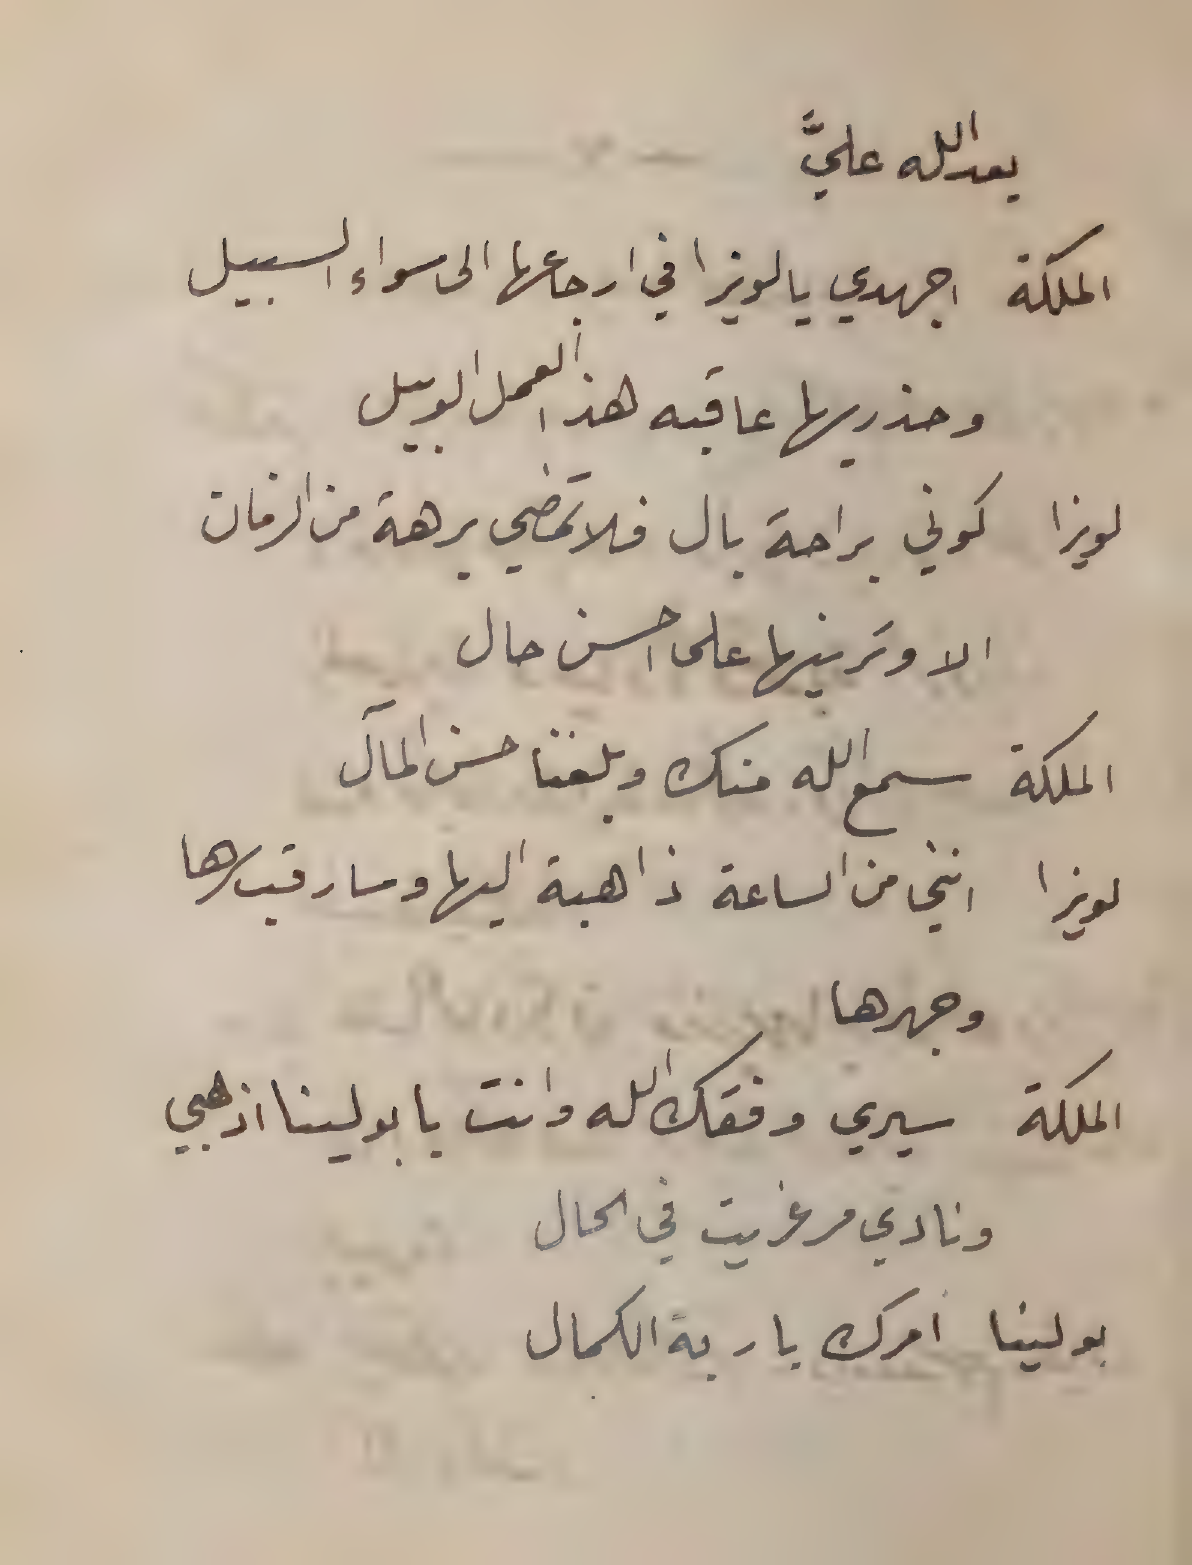 بعد الله عليَّ
الملكة اجهدي يا لويزا في ارجاعها الى سواء السبيل
وحذريها عاقبه هذا العمل الوبيل
لويزا كوني براحة بال فلا تمضي برهة من الزمان
الا وترينها على احسن حال
الملكة سمع الله منك وبلغنا حسن المآل
لويزا انني من الساعة ذاهبة اليها وسارقب سرها
وجهرها
الملكة سيري وفقك الله وانت يا بولينا اذهبي
ونادي مرغريت في الحال
بولينا امرك يا ربة الكمال